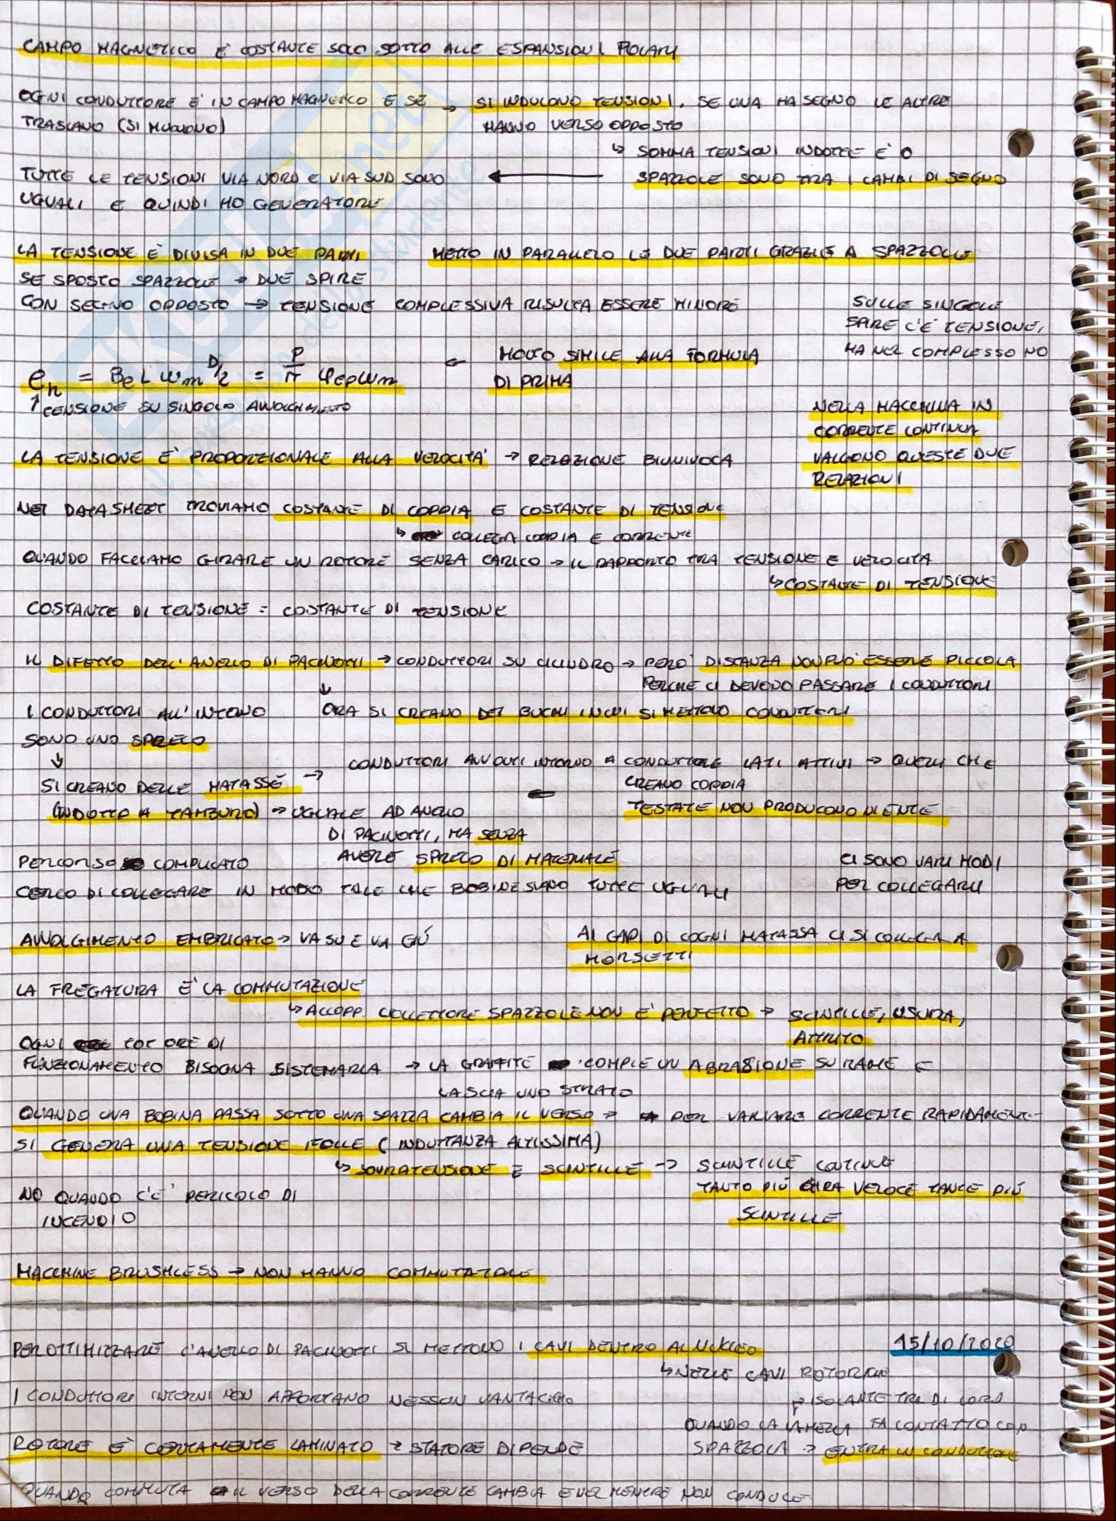 CAMPO MAGNETICO È COSTANTE SOLO SOTTO ALLE ESPANSIONI POLARI
OGNI CONDUTTORE E' IN CAMPO MAGNETICO E SE → SI INDUCONO TENSIONI. SE UNA HA SEGNO LE ALTRE
TRASLANO (SI MUOVONO) HANNO VERSO OPPOSTO
↳ SOMMA TENSIONI INDOTTE E' 0
TUTTE LE TENSIONI VIA NORD E VIA SUD SONO ← SPAZZOLE SONO TRA I CAMBI DI SEGNO
UGUALI E QUINDI HO GENERATORE
LA TENSIONE È DIVISA IN DUE PARTI METTO IN PARALLELO LE DUE PARTI GRAZIE A SPAZZOLE
SE SPOSTO SPAZZOLE → DUE SPIRE
CON SEGNO OPPOSTO → TENSIONE COMPLESSIVA RISULTA ESSERE MINORE
SULLE SINGOLE
SPIRE C'È TENSIONE,
MA NEL COMPLESSO NO
en = Be L ωm D/2 = P/π φep ωm ← MOLTO SIMILE ALLA FORMULA
DI PRIMA
↑ TENSIONE SU SINGOLO AVVOLGIMENTO
NELLA MACCHINA IN
CORRENTE CONTINUA
VALGONO QUESTE DUE
RELAZIONI
LA TENSIONE E' PROPORZIONALE ALLA VELOCITA' → RELAZIONE BIUNIVOCA
NEI DATASHEET TROVIAMO COSTANTE DI COPPIA E COSTANTE DI TENSIONE
↳ COLLEGA COPPIA E CORRENTE
QUANDO FACCIAMO GIRARE UN ROTORE SENZA CARICO → IL RAPPORTO TRA TENSIONE E VELOCITA
↳ COSTANTE DI TENSIONE
COSTANTE DI TENSIONE = COSTANTE DI TENSIONE
IL DIFETTO DELL'ANELLO DI PACINOTTI → CONDUTTORI SU CILINDRO → PERO' DISTANZA NON PUO' ESSERE PICCOLA
PERCHE CI DEVONO PASSARE I CONDUTTORI
↓
I CONDUTTORI ALL'INTERNO ORA SI CREANO DEI BUCHI IN CUI SI METTONO CONDUTTORI
SONO UNO SPRECO
↓
SI CREANO DELLE MATASSE → CONDUTTORI AVVOLTI INTORNO A CONDUTTORE LATI ATTIVI → QUELLI CHE
CREANO COPPIA
(INDOTTO A TAMBURO) → UGUALE AD ANELLO TESTATE NON PRODUCONO NIENTE
DI PACINOTTI, MA SENZA
AVERE SPRECO DI MATERIALE
PERCORSO COMPLICATO CI SONO VARI MODI
CERCO DI COLLEGARE IN MODO TALE CHE BOBINE SIANO TUTTE UGUALI PER COLLEGARLI
AVVOLGIMENTO EMBRICATO → VA SU E VA GIÙ AI CAPI DI OGNI MATASSA CI SI COLLEGA A
MORSETTI
LA FREGATURA E' LA COMMUTAZIONE
↳ ACCOPP. COLLETTORE SPAZZOLE NON È PERFETTO → SCINTILLE, USURA,
ATTRITO
OGNI TOT ORE DI
FUNZIONAMENTO BISOGNA SISTEMARLA → LA GRAFITE COMPIE UN ABRASIONE SU RAME E
LASCIA UNO STRATO
QUANDO UNA BOBINA PASSA SOTTO UNA SPAZZ. CAMBIA IL VERSO → PER VARIARE CORRENTE RAPIDAMENTE
SI GENERA UNA TENSIONE FOLLE (INDUTTANZA ALTISSIMA)
↳ SOVRATENSIONE E SCINTILLE → SCINTILLE CONTINUE
NO QUANDO C'E' PERICOLO DI TANTO PIÙ GIRA VELOCE TANTE PIÙ
INCENDIO SCINTILLE
MACCHINE BRUSHLESS → NON HANNO COMMUTATORE
15/10/2020
PER OTTIMIZZARE L'ANELLO DI PACINOTTI SI METTONO I CAVI DENTRO AL NUCLEO
↳ NELLE CAVI ROTORICHE
I CONDUTTORI INTERNI NON APPORTANO NESSUN VANTAGGIO
ISOLANTE TRA DI LORO
QUANDO LA LAMELLA FA CONTATTO CON
ROTORE È CERTAMENTE LAMINATO → STATORE DIPENDE SPAZZOLA → ENTRA IN CONDUZIONE
QUANDO COMMUTA IL VERSO DELLA CORRENTE CAMBIA E NEL MENTRE NON CONDUCE